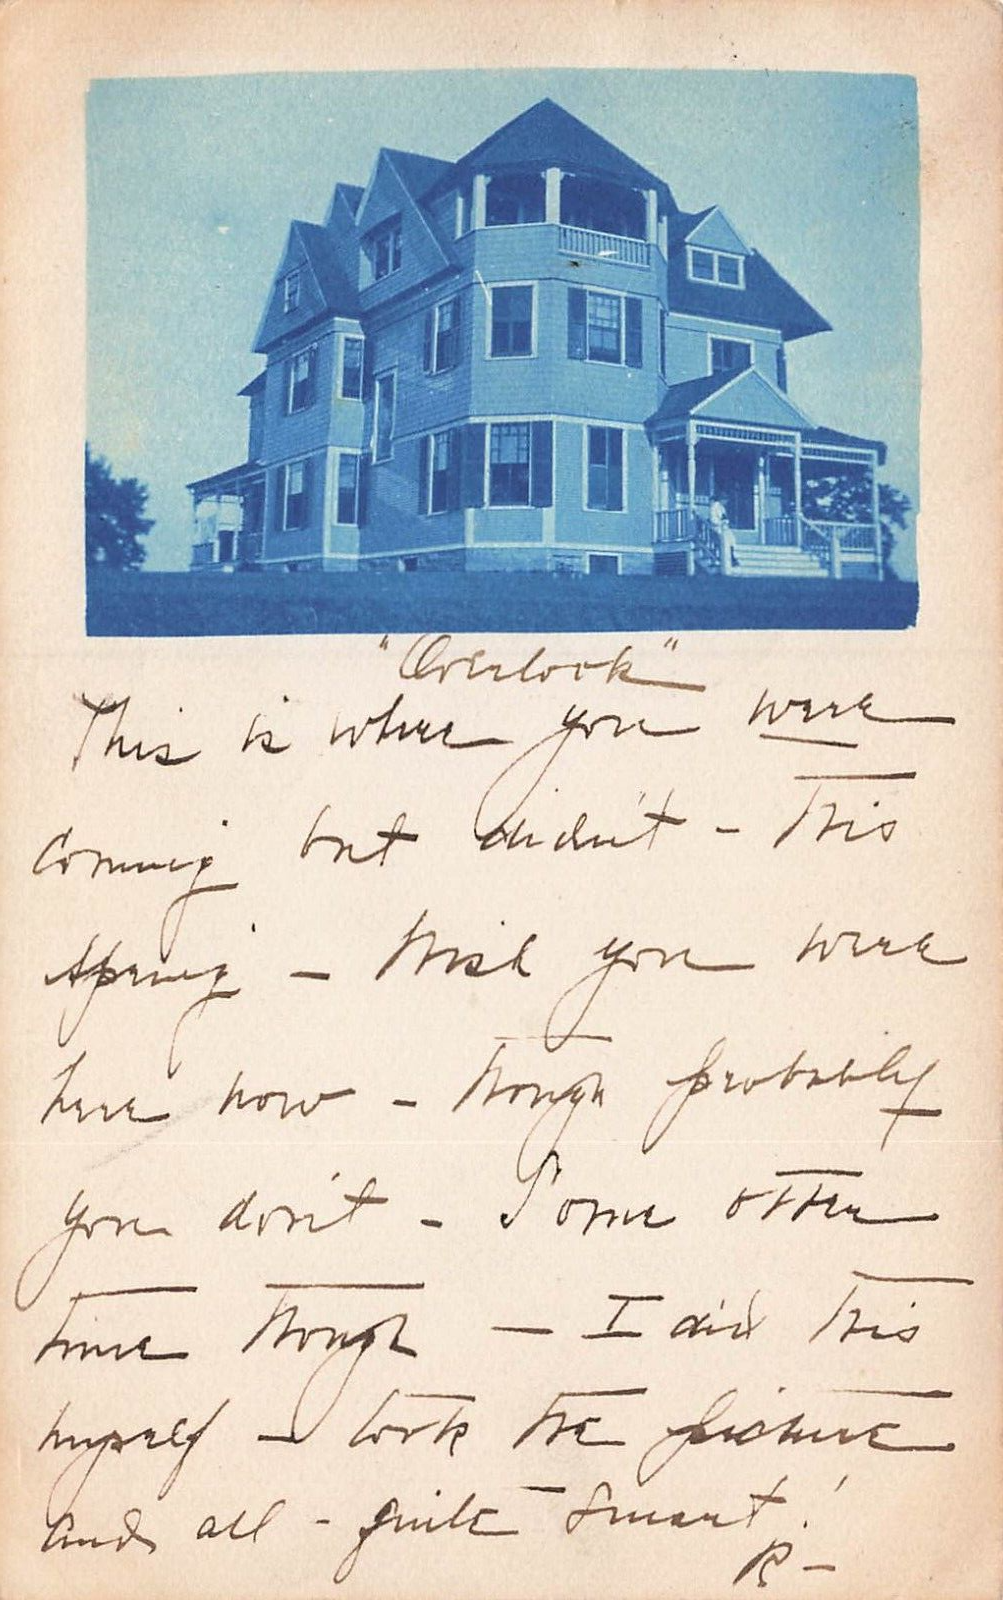 "Overlook"
This is where you were
coming but didn't - this
spring - Wish you were
here now - though probably
you don't - Some other
time though - I did this
myself - took the picture
and all - quite smart!
R -